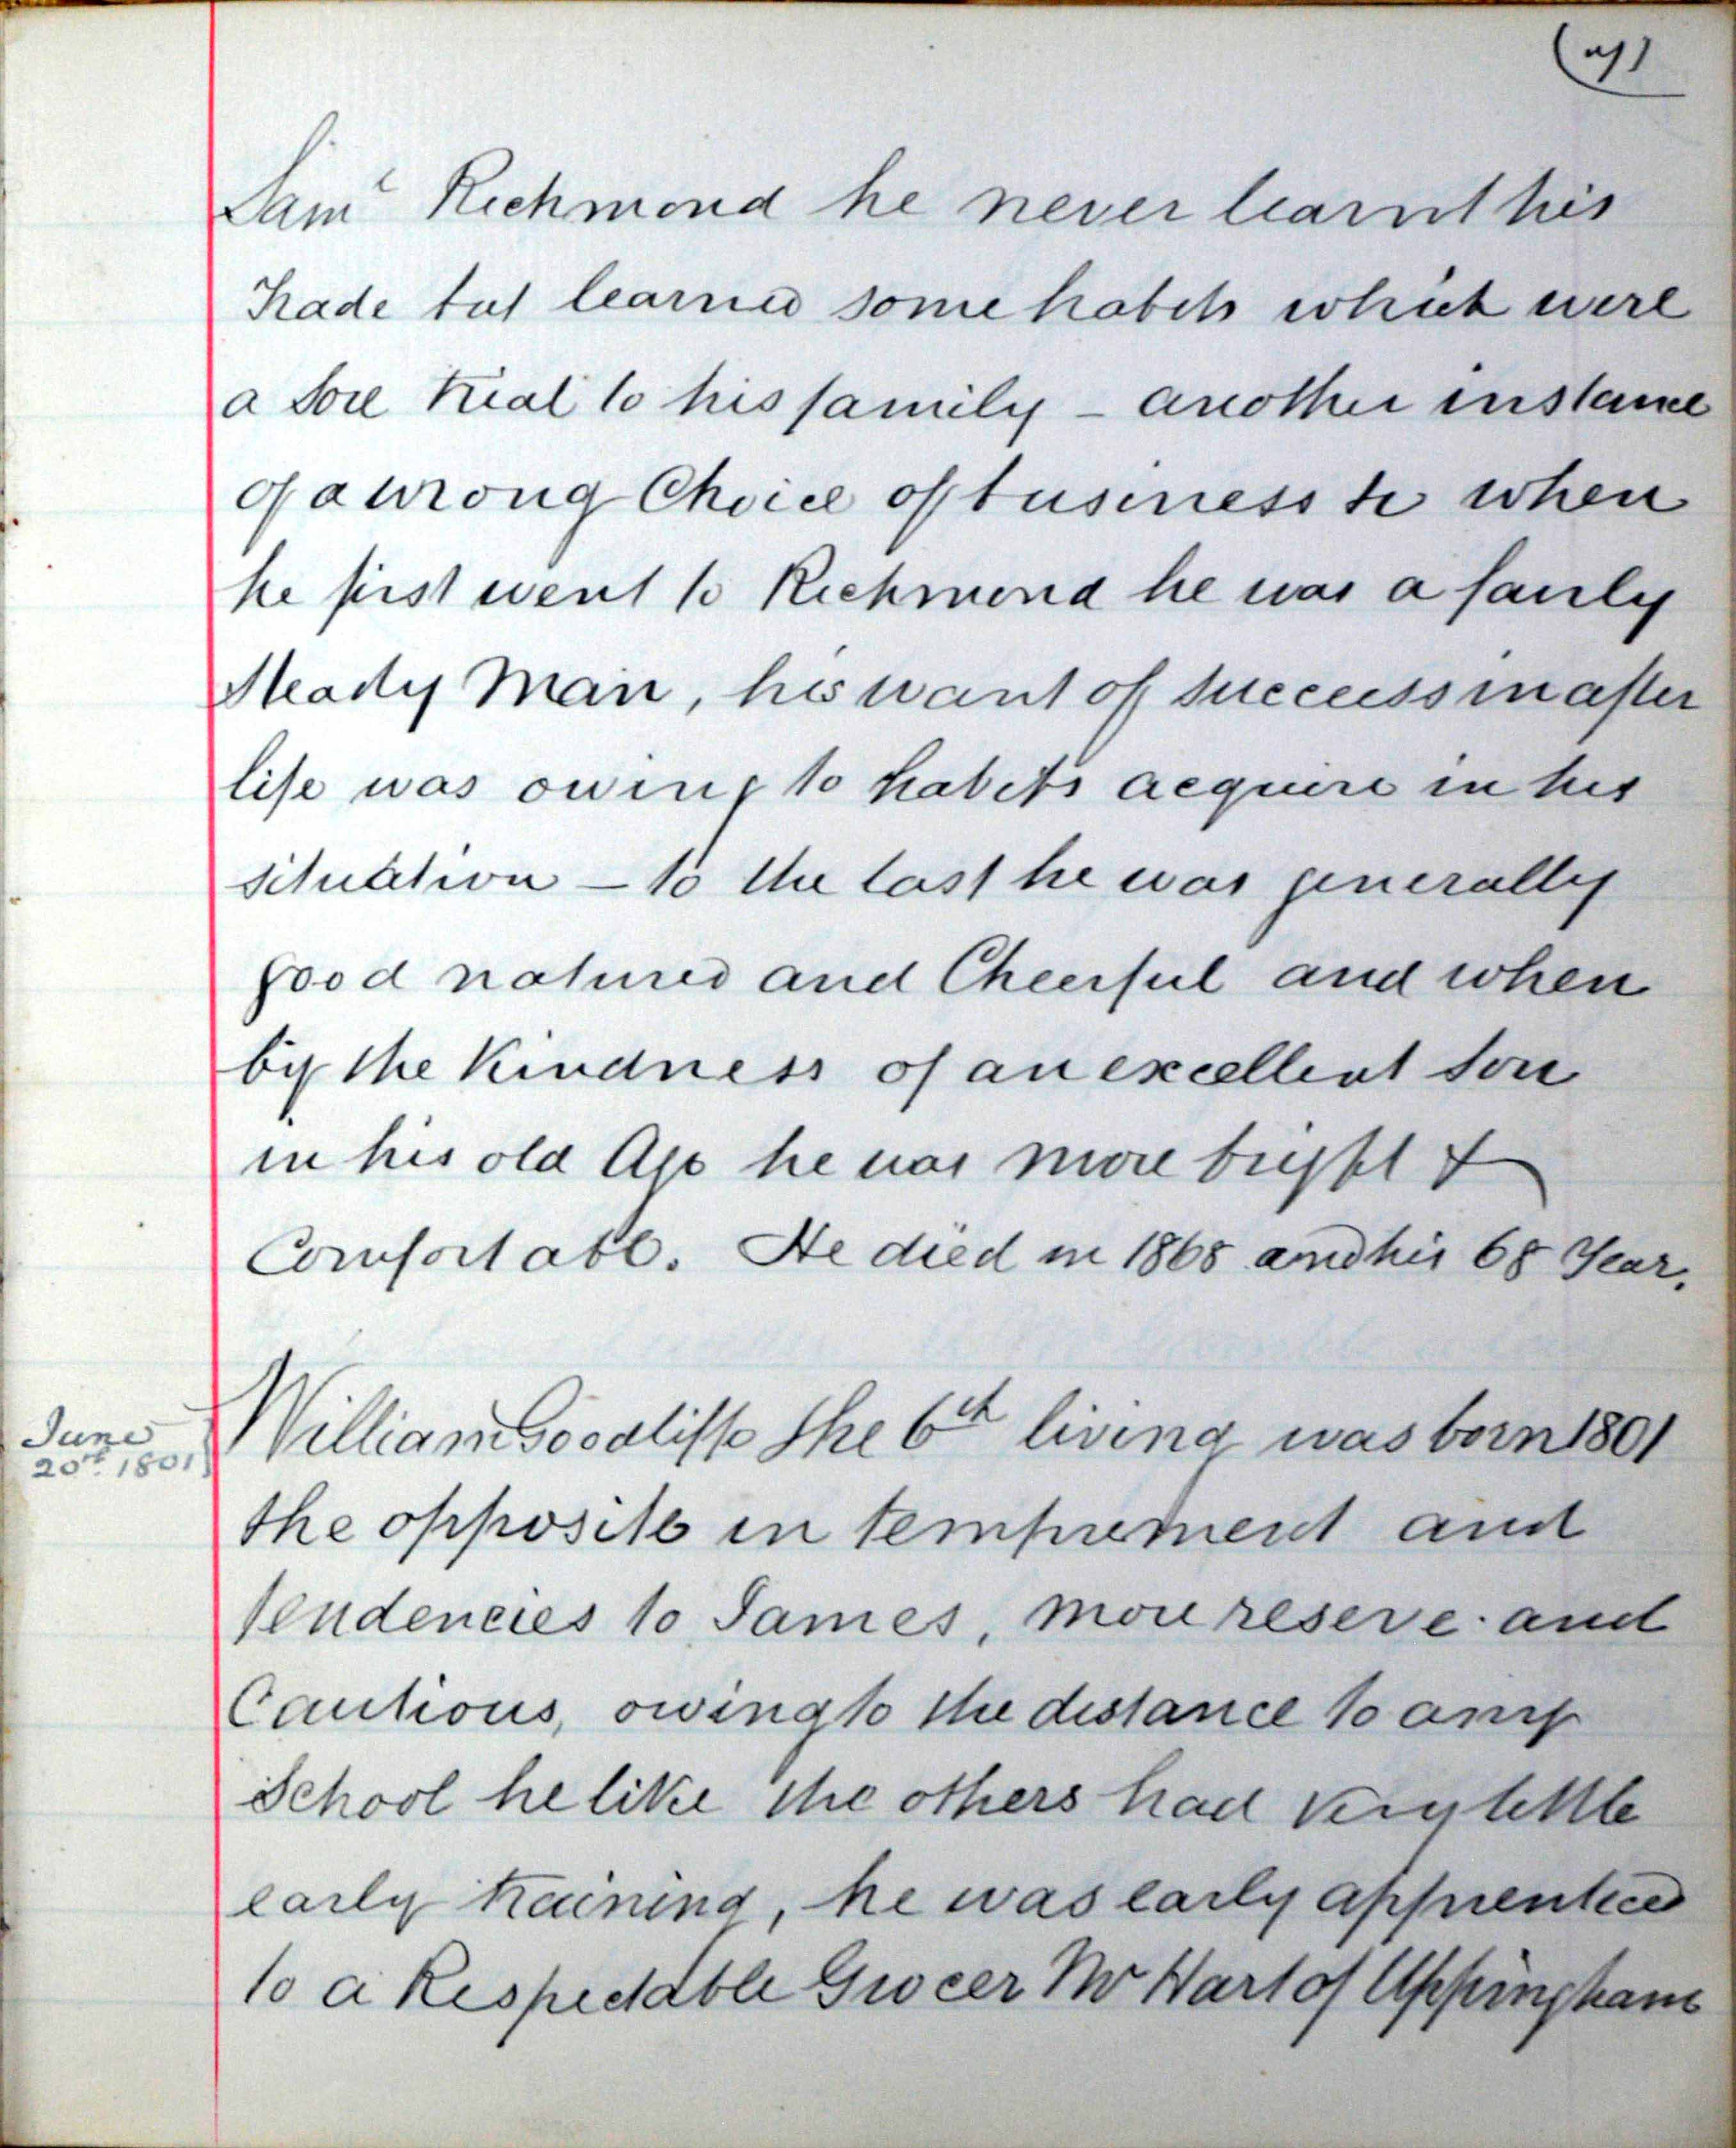 Saml Richmond he never learnt his
Trade but learned some habits which were
a sore trial to his family – another instance
of a wrong Choice of business &c when
he first went to Richmond he was a fairly
Steady Man, his want of success in after
life was owing to habits acquire in his
situation – to the last he was generally
good natured and Cheerful and when
by the Kindness of an excellent son
in his old Age he was more bright &
Comfortable. He died in 1868 and his 68 Year.
June
20th 1801
William Goodliffe the 6th living was born 1801
the opposite in temprement and
tendencies to James, more reserve and
Cautious, owing to the distance to any
School he like the others had very little
early training, he was early apprenticed
to a Respectable Grocer Mr Hart of Uppingham